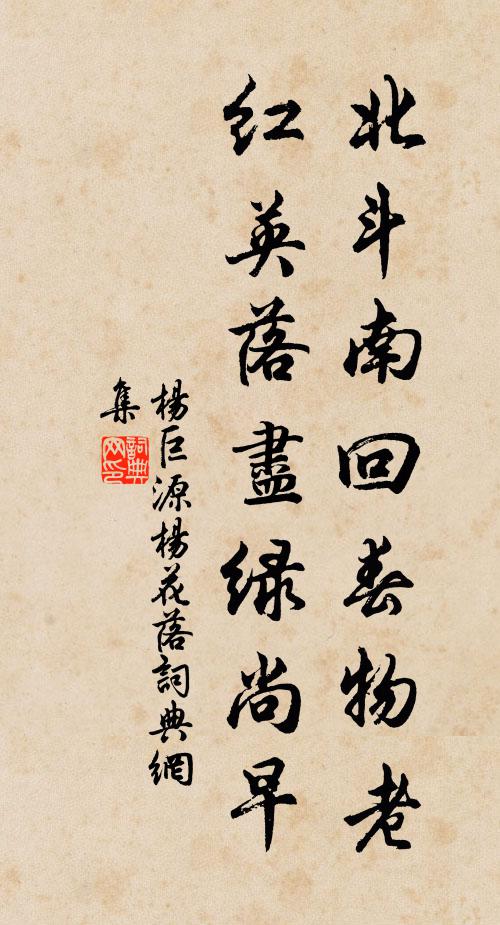 北斗南回春物老
红英落盡绿尚早
楊巨源楊花落詞典網
集
詞典网印